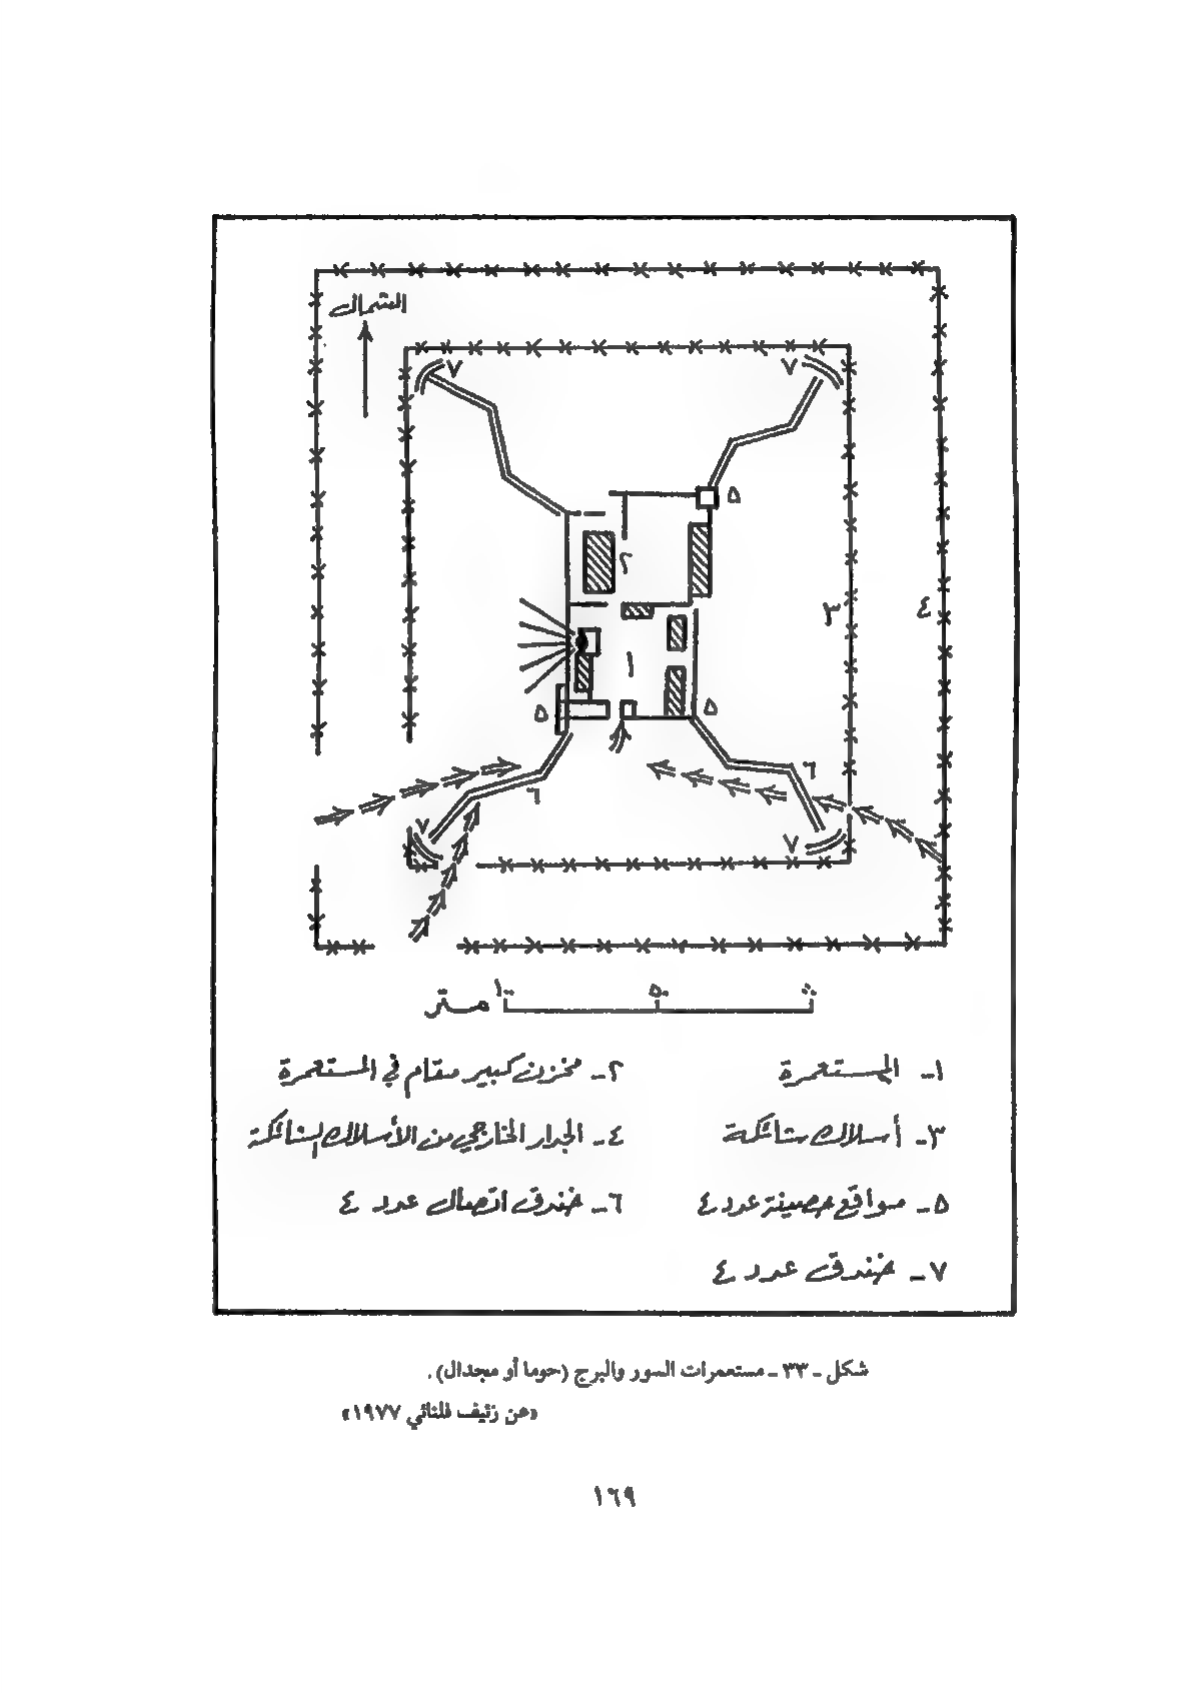 الشمال
٧ ٧
٥
٢
٣ ٤
١
٥ ٥
٦ ٦
٧ ٧
٥٠ ١٠٠ متر
١- المستعمرة ٢- مخزن كبير مقام في المستعمرة
٣- أسلاك شائكة ٤- الجدار الخارجي من الأسلاك الشائكة
٥- مواقع حصينة عدد ٤ ٦- خندق اتصال عدد ٤
٧- خندق عدد ٤
شكل ـ ٣٣ ـ مستعمرات السور والبرج (حوما أو مجدال) .
«عن زئيف فلنائي ١٩٧٧»
١٦٩